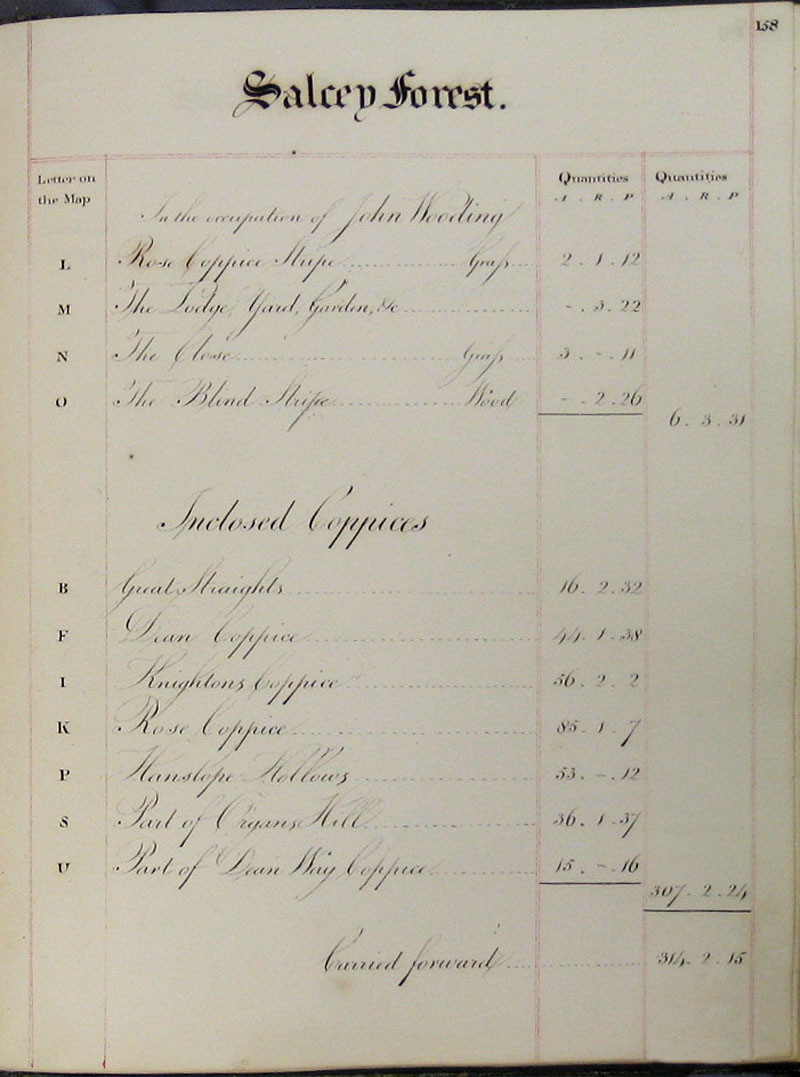 158
Salcey Forest.
Letter on the Map Quantities Quantities
A . R . P A . R . P
In the occupation of John Wooding
L Rose Coppice Stripe Graſs 2 . 1 . 12
M The Lodge, Yard, Garden, &c - . 3 . 22
N The Close Graſs 3 . - . 11
O The Blind Stripe Wood - . 2 . 26
6 . 3 . 31
Inclosed Coppices
B Great Straights 16 . 2 . 32
F Dean Coppice 44 . 1 . 38
I Knightons Coppice 56 . 2 . 2
K Rose Coppice 85 . 1 . 7
P Hanslope Hollows 53 . - . 12
S Part of Organs Hill 36 . 1 . 37
U Part of Dean Way Coppice 15 . - . 16
307 . 2 . 24
Carried forward 314 . 2 . 15